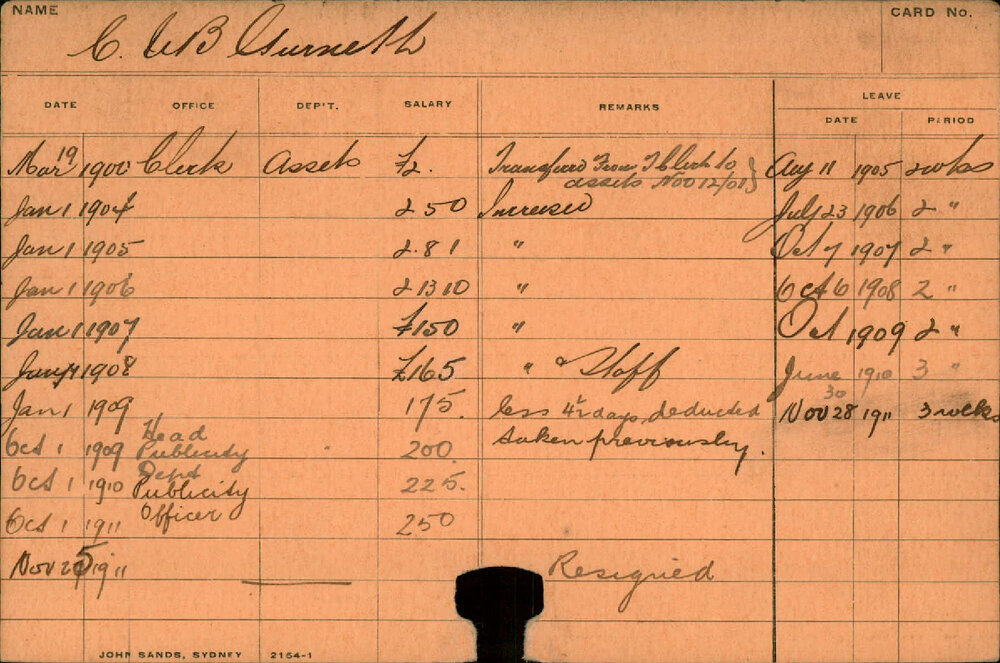 NAME
CARD No.
C. W B Gurneth
DATE OFFICE DEP'T. SALARY REMARKS LEAVE
DATE PERIOD
Mar 19 1900 Clerk Assets £2. Transferd From T Clerk to Aug 11 1905 2 wks
assets Nov 12/01 }
Jan 1 1904 2 50 Increased July 23 1906 2 "
Jan 1 1905 2. 8 1 " Oct 7 1907 2 "
Jan 1 1906 2 13 10 " Oct 6 1908 2 "
Jan 1 1907 £150 " Oct 1909 2 "
Jan 1 1908 £165 " Staff June 1910 3 "
Jan 1 1909 175. less 4½ days deducted Nov 28 30 1911 3 weeks
taken previously.
Oct 1 1909 Head Publicity 200
Oct 1 1910 Dept Publicity 225.
Oct 1 1911 Officer 250
Nov 25 1911 Resigned
JOHN SANDS, SYDNEY 2154-1